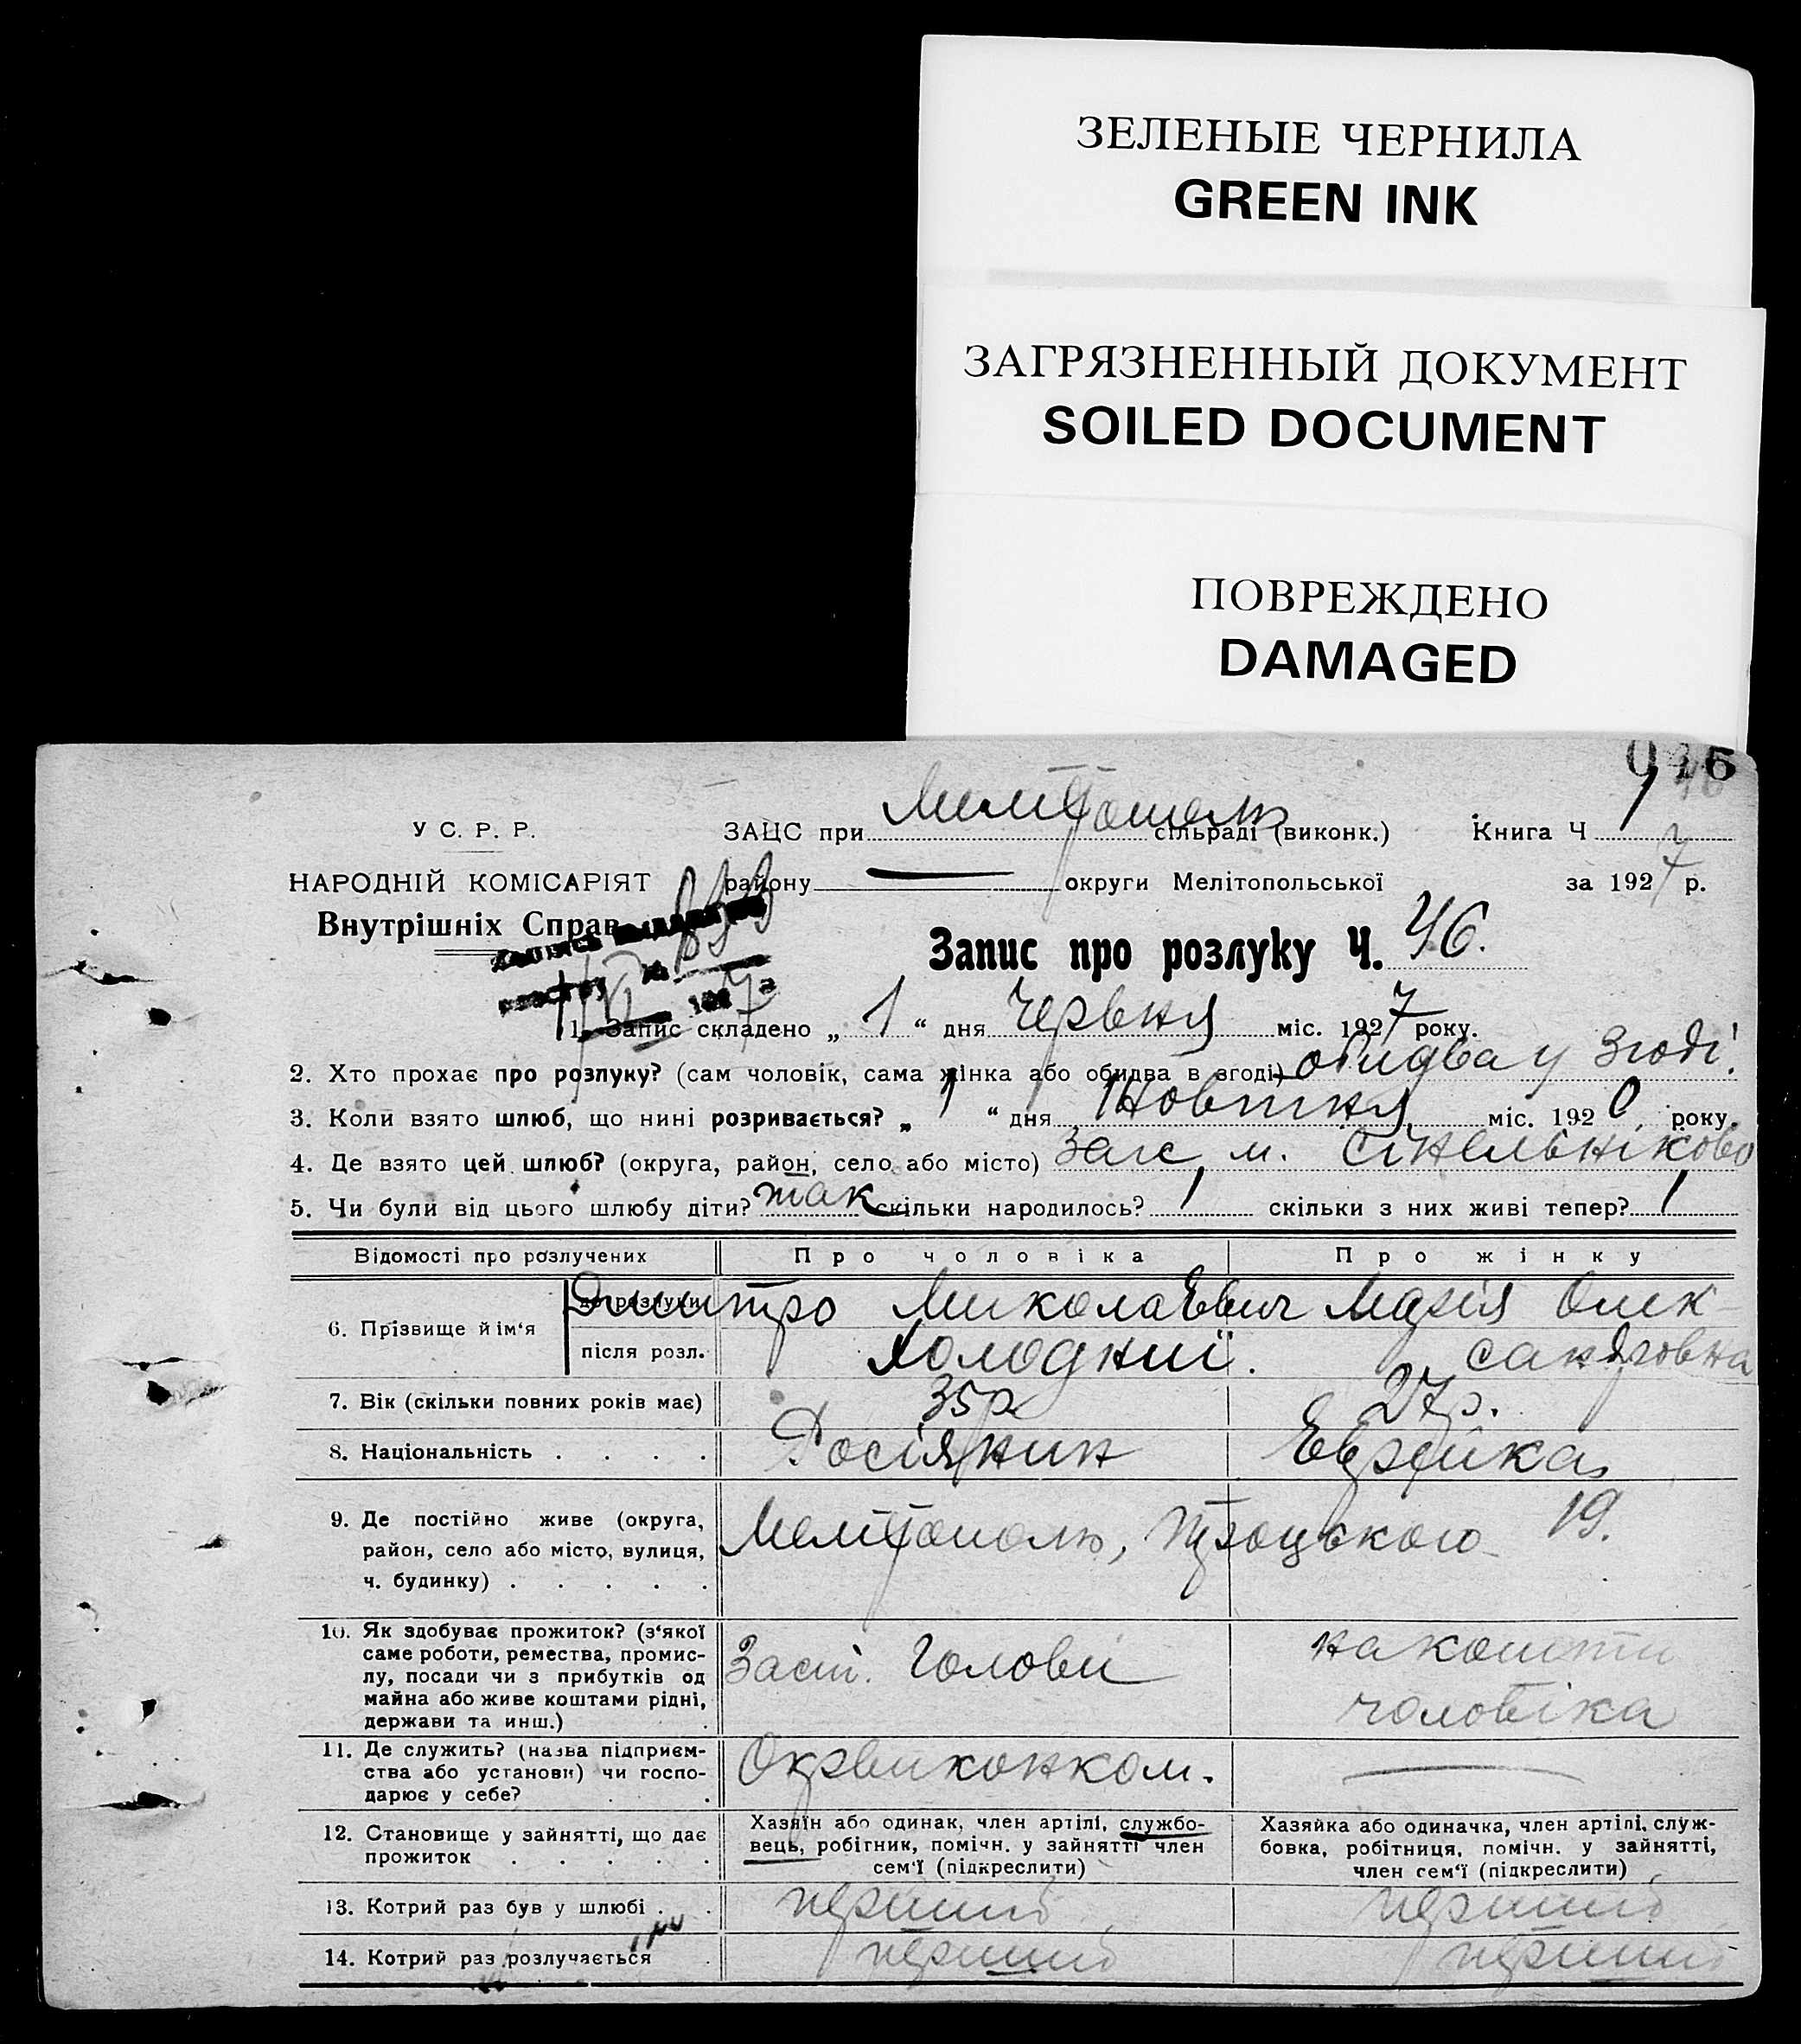 ЗЕЛЕНЫЕ ЧЕРНИЛА
GREEN INK
ЗАГРЯЗНЕННЫЙ ДОКУМЕНТ
SOILED DOCUMENT
ПОВРЕЖДЕНО
DAMAGED
У С. Р. Р.
НАРОДНІЙ КОМІСАРІЯТ
Внутрішніх Справ
ЗАЦС при Мелітополь сільраді (виконк.) Книга Ч 1
району — округи Мелітопольської за 1927 р.
Запис про розлуку Ч. 46.
1. Запис складено „ 1 “ дня Червня міс. 1927 року.
2. Хто прохає про розлуку? (сам чоловік, сама жінка або обидва в згоді) обидва у згоді
3. Коли взято шлюб, що нині розривається? „ 1 “ дня Жовтня міс. 1920 року.
4. Де взято цей шлюб? (округа, район, село або місто) Загс м. Сінельніково
5. Чи були від цього шлюбу діти? так скільки народилось? 1 скільки з них живі тепер? 1
Відомості про розлучених Про чоловіка Про жінку
6. Прізвище й ім‘я до розлуки Дмитро Миколаевич Марія Олек-
після розл. Холодний. сандровна
7. Вік (скільки повних років має) 35р 27р.
8. Національність . . . . Росіянин Еврейка
9. Де постійно живе (округа, район, село або місто, вулиця, ч. будинку) . . . . . Мелітополь, Троцького 19.
10. Як здобуває прожиток? (з‘якої
саме роботи, ремества, промис-
лу, посади чи з прибутків од
майна або живе коштами рідні,
держави та инш.) .
Заст. Голови
на кошти
чоловіка
11. Де служить? (назва підприєм-
ства або установи) чи госпо-
дарює у себе? . .
Окрвиконком. —
12. Становище у зайнятті, що дає
прожиток . . . . .
Хазяїн або одинак, член артілі, службо-
вець, робітник, помічн. у зайнятті член
сем‘ї (підкреслити)
Хазяйка або одиначка, член артілі, служ-
бовка, робітниця, помічн. у зайнятті,
член сем‘ї (підкреслити)
13. Котрий раз був у шлюбі . . перший перший
14. Котрий раз розлучається . перший перший